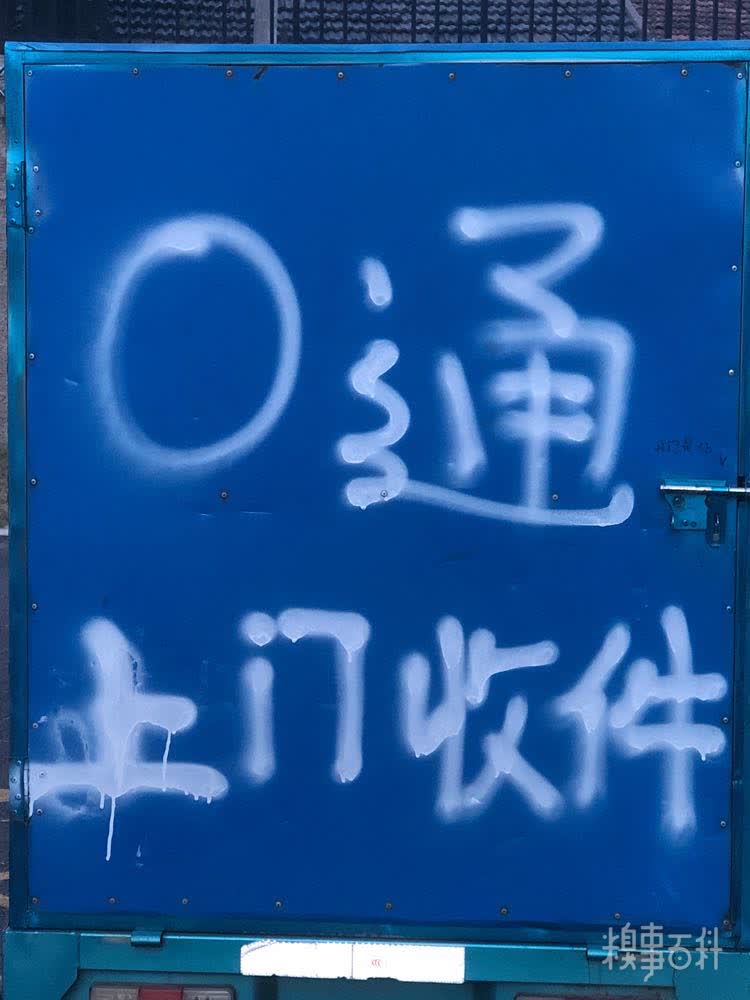 O通
上门收件
糗事百科